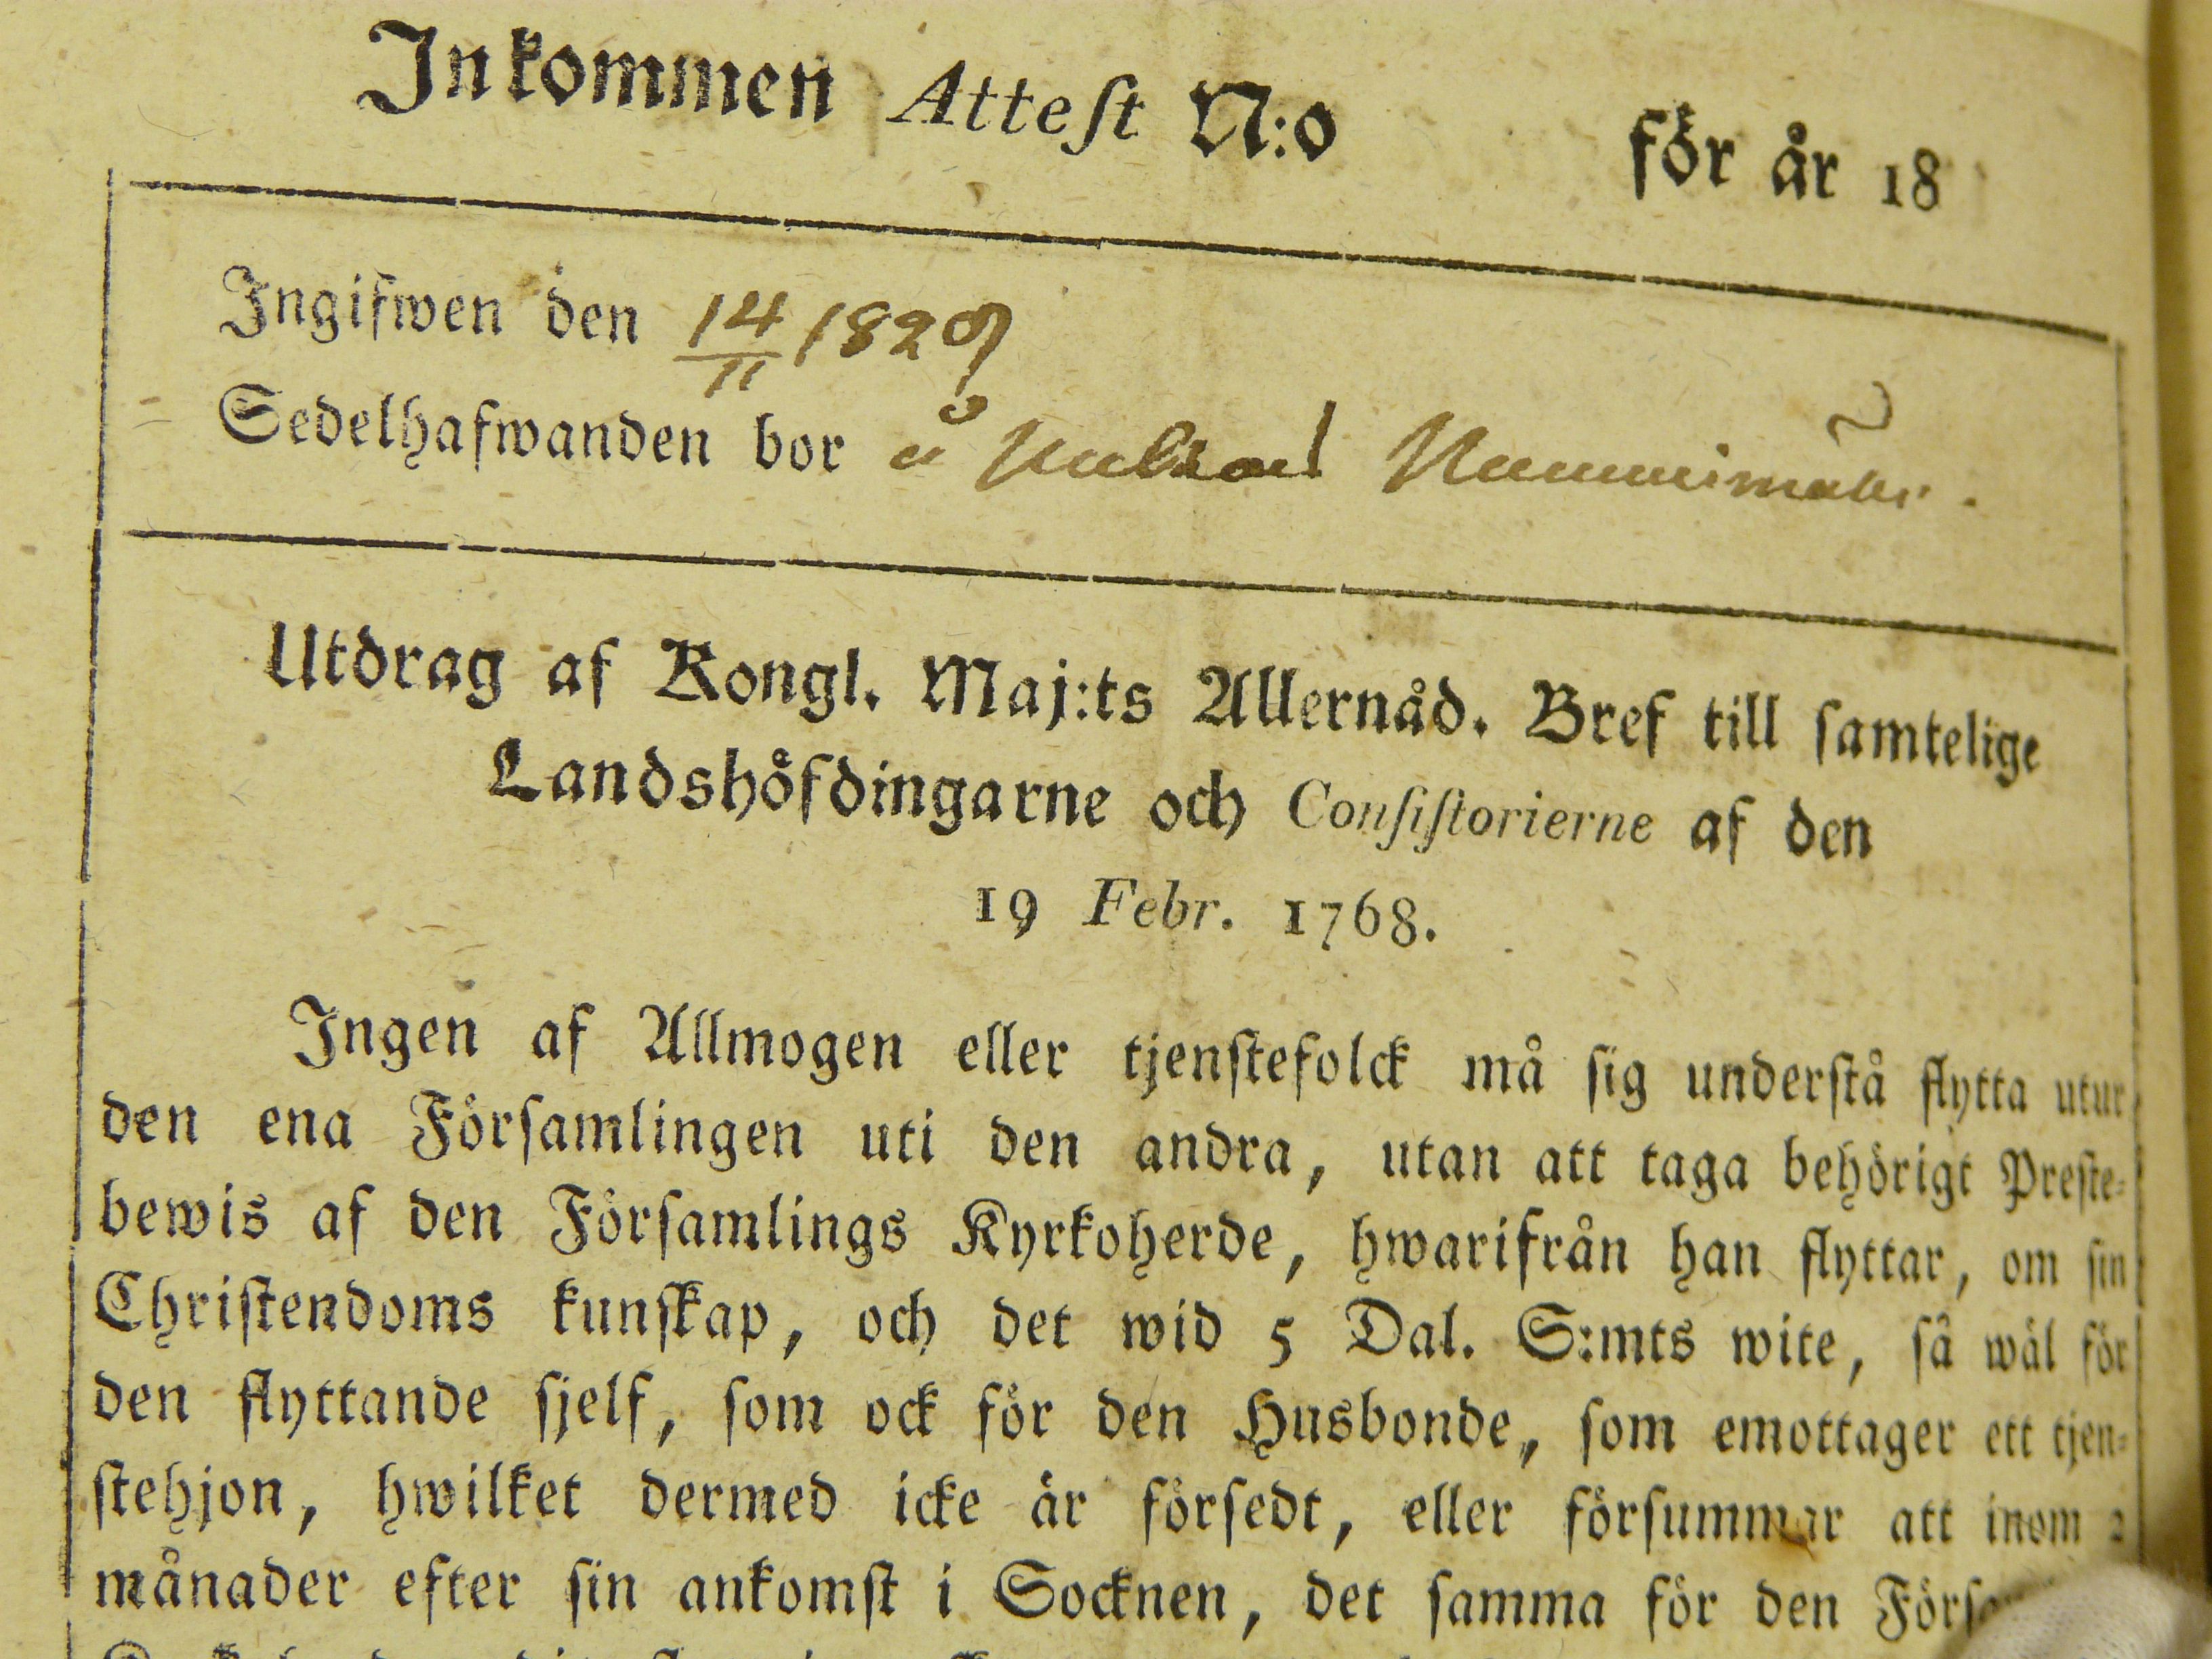 Inkommen Attest N:o för år 18
Ingifwen den 14/11 1829
Sedelhafwanden bor å
Utdrag af Kongl. Maj:ts Allernåd. Bref till samtelige
Landshöfdingarne och Consistorierne af den
19 Febr. 1768.
Ingen af Allmogen eller tjenstefolck må sig understå flytta utur
den ena Församlingen uti den andra, utan att taga behörigt Preste-
bewis af den Församlings Kyrkoherde, hwarifrån han flyttar, om sin
Christendoms kunskap, och det wid 5 Dal. S:mts wite, så wäl för
den flyttande sjelf, som ock för den Husbonde, som emottager ett tjen-
stehjon, hwilket dermed icke är försedt, eller försummar att inom 2
månader efter sin ankomst i Socknen, det samma för den